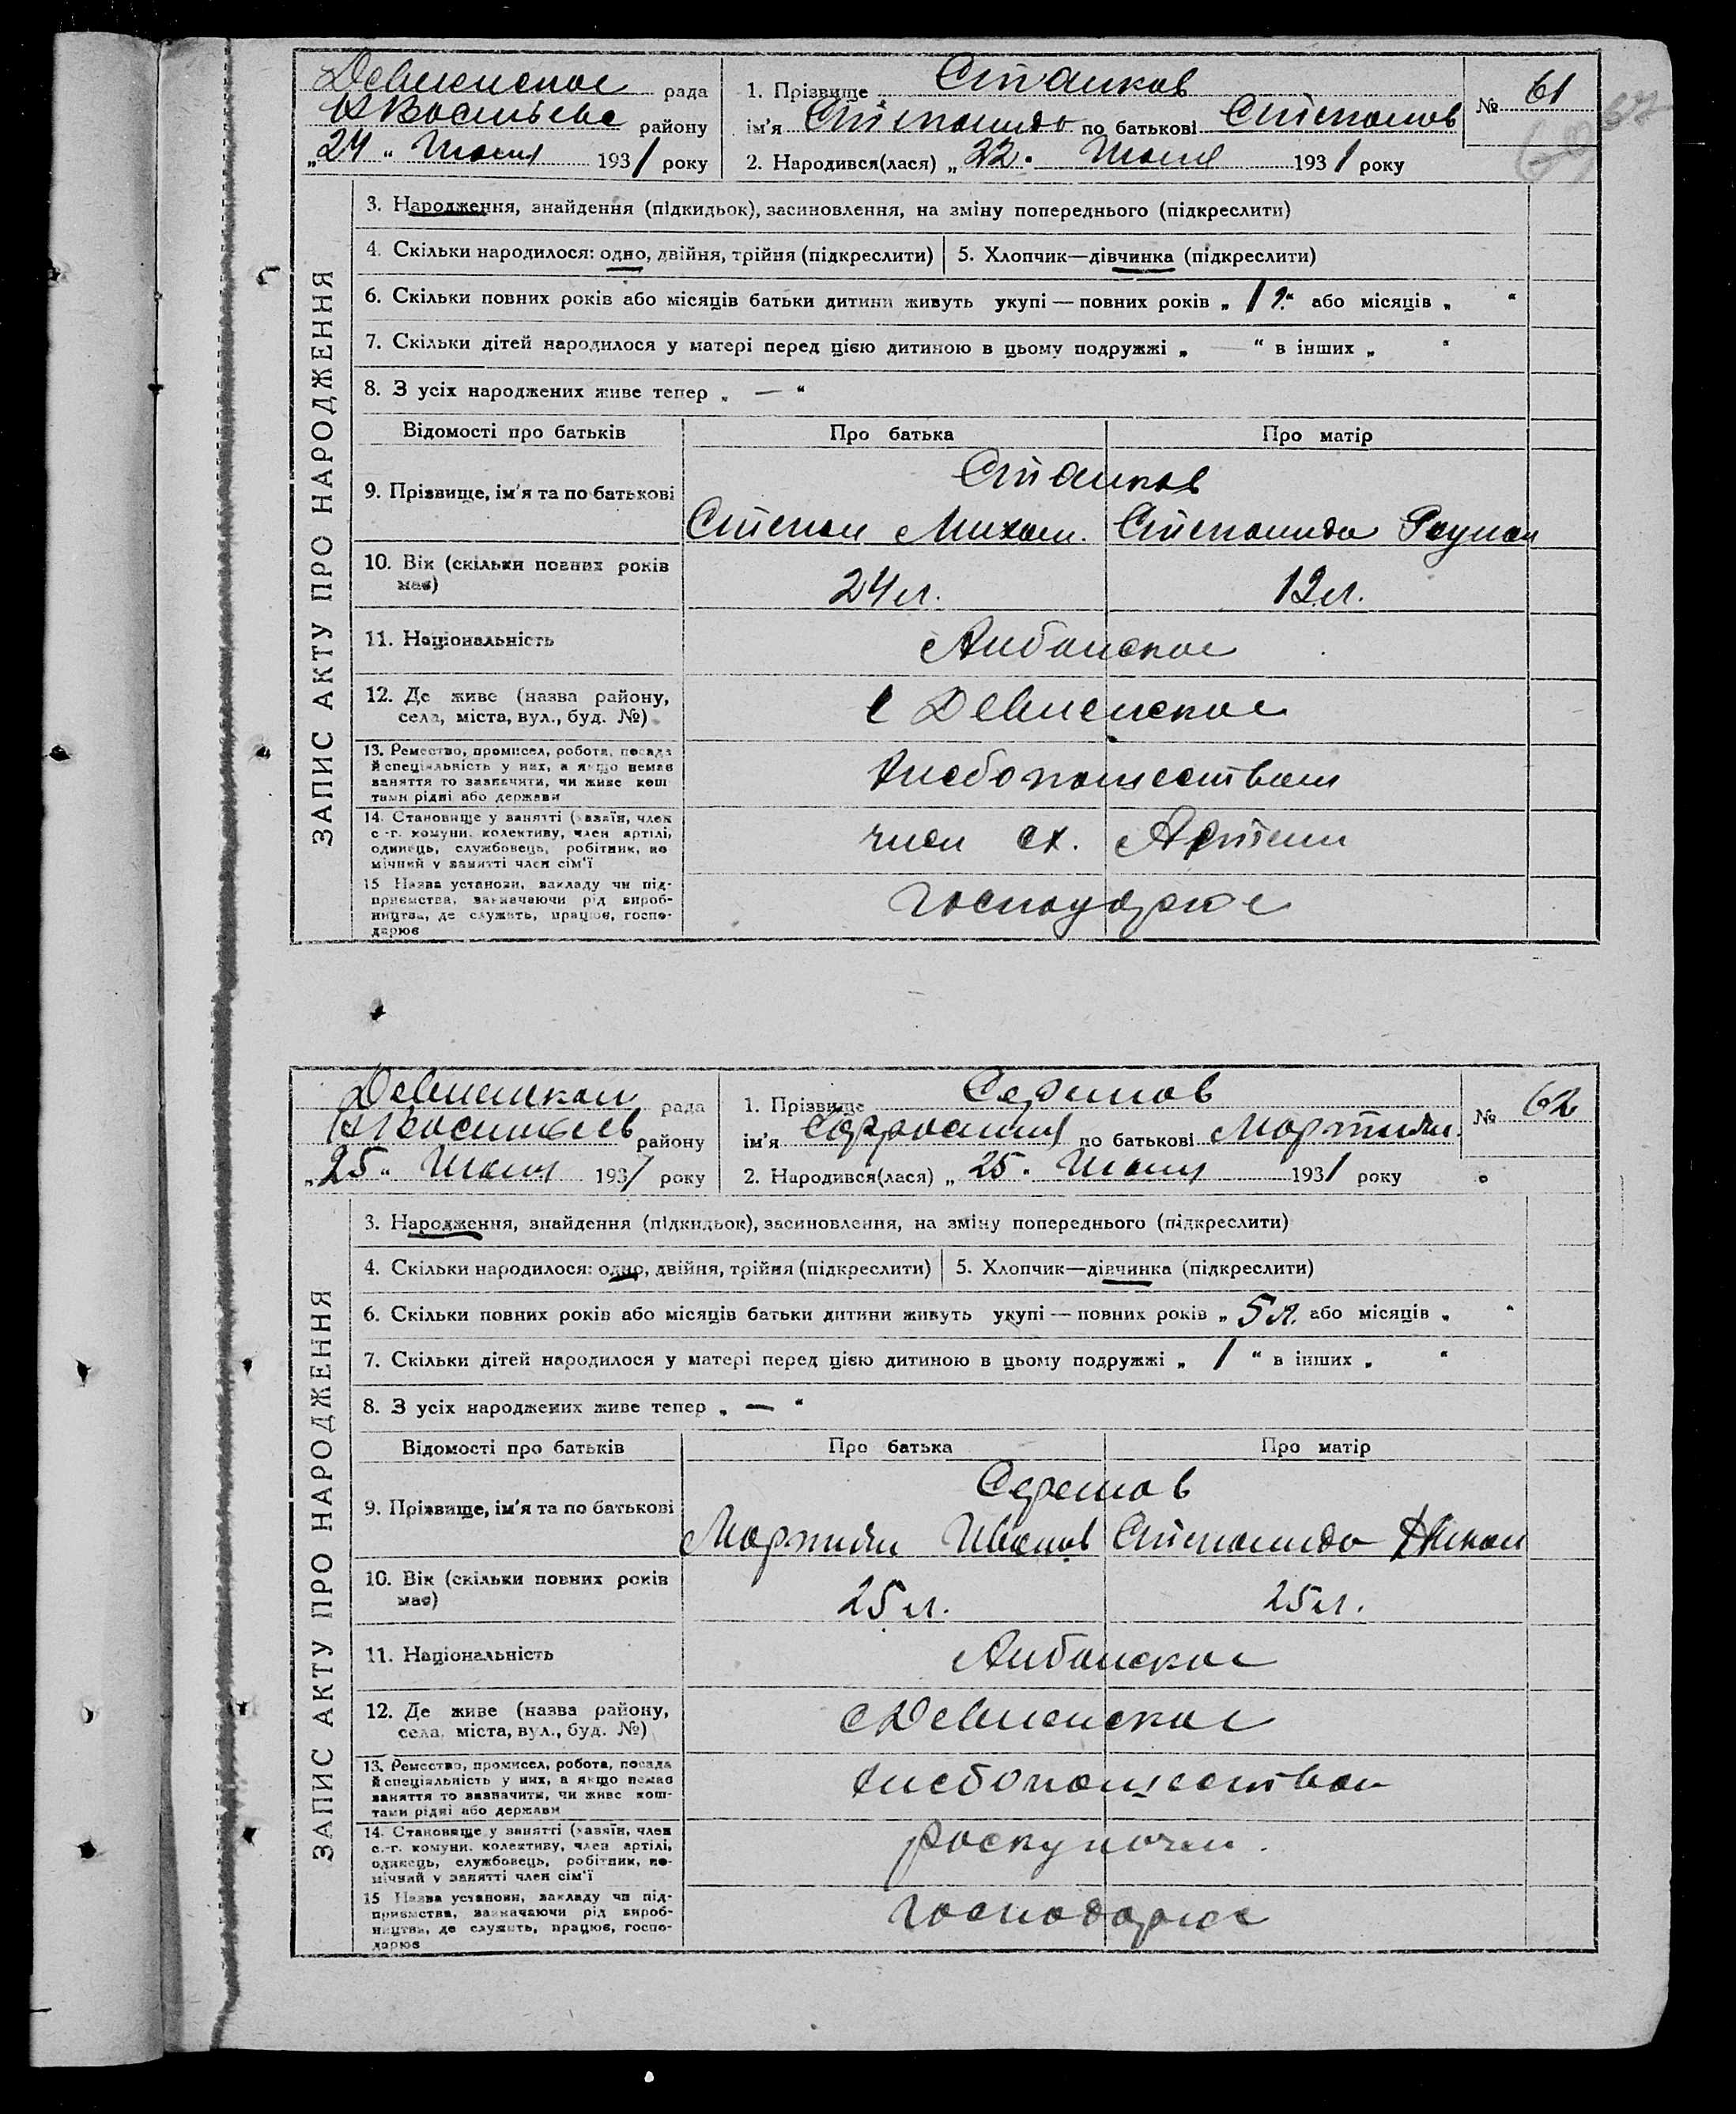 Девненское рада
района
„24“ Июня 1931 року
1. Прізвище Станков
ім'я Степанида по батькові Степанов
2. Народився(лася) „22“ Июня 1931 року
№ 61
ЗАПИС АКТУ ПРО НАРОДЖЕННЯ
3. Народження, знайдення (підкидьок), засиновлення, на зміну попереднього (підкреслити)
4. Скільки народилося: одно, двійня, трійня (підкреслити)
5. Хлопчик—дівчинка (підкреслити)
6. Скільки повних років або місяців батьки дитини живуть укупі — повних років „1 г.“ або місяців „ “
7. Скільки дітей народилося у матері перед цією дитиною в цьому подружжі „—“ в інших „ “
8. З усіх народжених живе тепер „—“
Відомості про батьків Про батька Про матір
9. Прізвище, ім'я та по батькові
Станков
Степан Михаил. Степанида
10. Вік (скільки повних років має)
24 л. 19 л.
11. Національність
Албанское
12. Де живе (назва району, села, міста, вул., буд. №)
с Девненское
13. Ремество, промисел, робота, посада й спеціяльність у них, а якщо немає заняття то зазначити, чи живе коштами рідні або держави
Хлебопашеством
14. Становище у занятті (хазяїн, член с.-г. комуни, колективу, член артілі, одинець, службовець, робітник, помічний у занятті член сім'ї
член сх. Артели
15 Назва установи, закладу чи підприємства, зазначаючи рід виробництва, де служить, працює, господарює
№ 62
Девненское рада
району
„25“ Июня 1931 року
1. Прізвище
ім'я Ефросиния по батькові Мартин.
2. Народився(лася) „25“ Июня 1931 року
ЗАПИС АКТУ ПРО НАРОДЖЕННЯ
3. Народження, знайдення (підкидьок), засиновлення, на зміну попереднього (підкреслити)
4. Скільки народилося: одно, двійня, трійня (підкреслити)
5. Хлопчик—дівчинка (підкреслити)
6. Скільки повних років або місяців батьки дитини живуть укупі — повних років „5 л.“ або місяців „ “
7. Скільки дітей народилося у матері перед цією дитиною в цьому подружжі „1“ в інших „ “
8. З усіх народжених живе тепер „—“
Відомості про батьків Про батька Про матір
9. Прізвище, ім'я та по батькові
Мартин Иванов Степанида
10. Вік (скільки повних років має)
25 л. 25 л.
11. Національність
Албанское
12. Де живе (назва району, села, міста, вул., буд. №)
с Девненское
13. Ремество, промисел, робота, посада й спеціяльність у них, а якщо немає заняття то зазначити, чи живе коштами рідні або держави
Хлебопашеством
14. Становище у занятті (хазяїн, член с.-г. комуни, колективу, член артілі, одинець, службовець, робітник, помічний у занятті член сім'ї
15 Назва установи, закладу чи підприємства, зазначаючи рід виробництва, де служить, працює, господарює